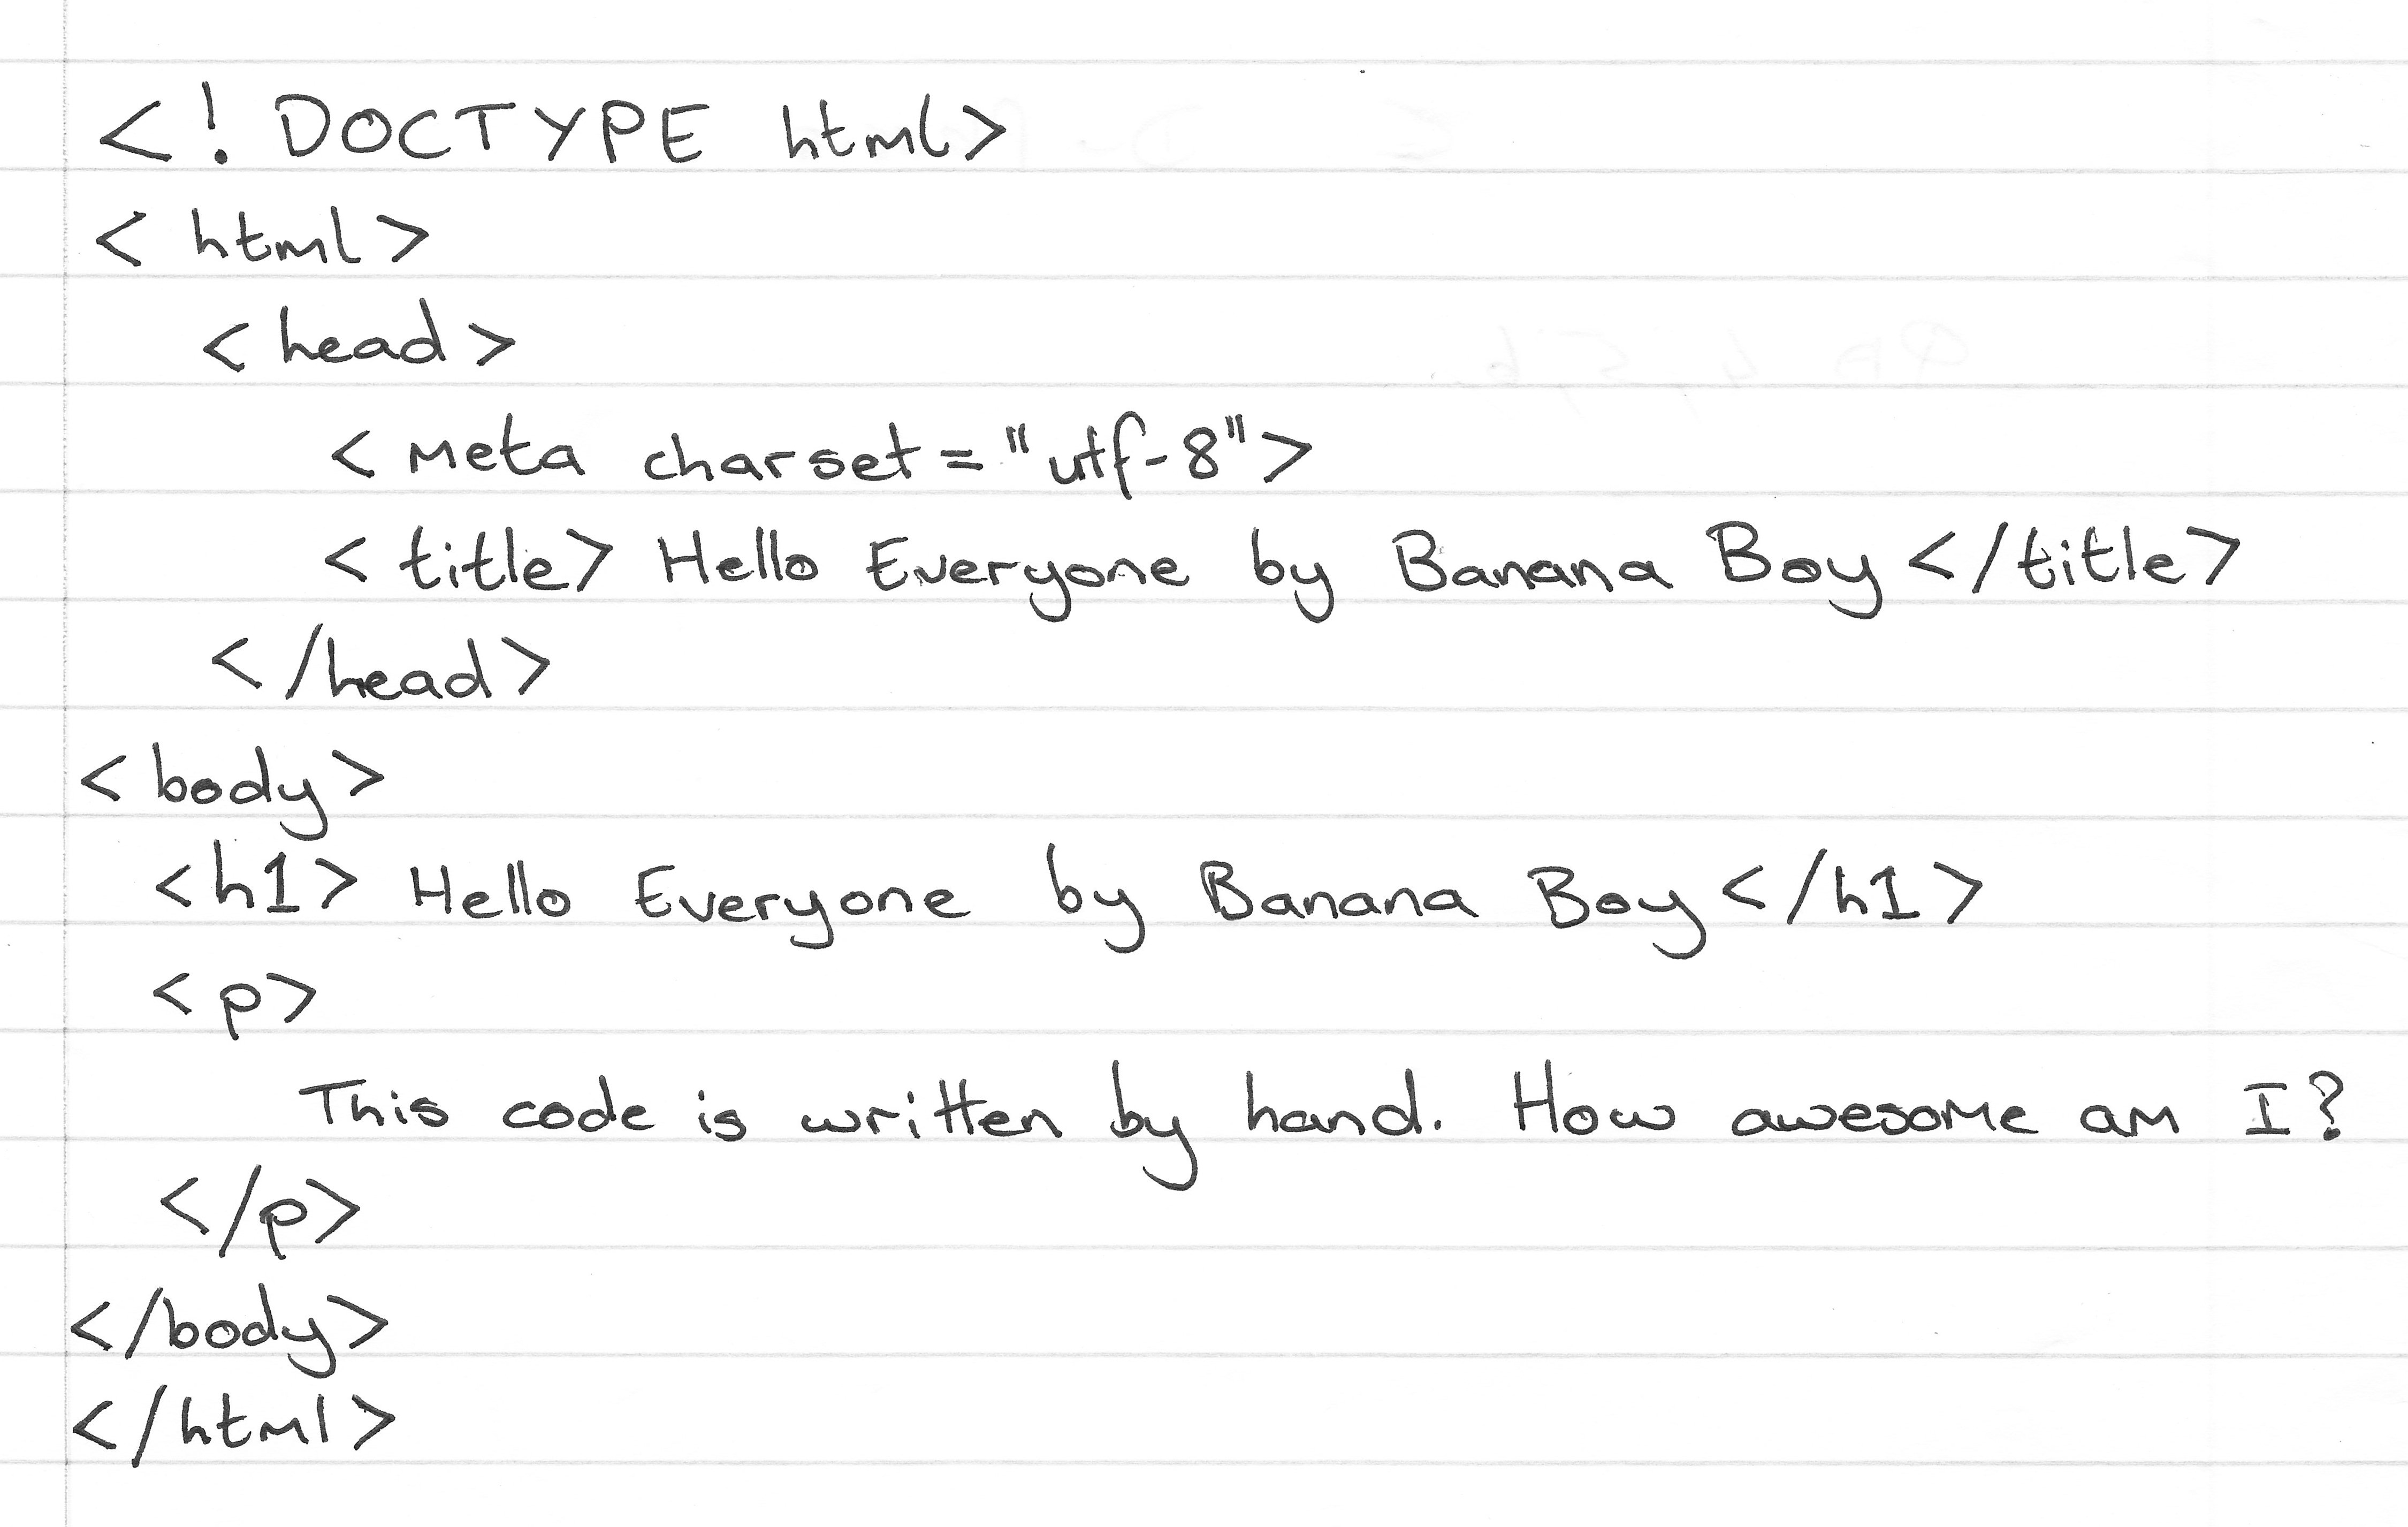 <!DOCTYPE html>
<html>
<head>
<meta charset="utf-8">
<title> Hello Everyone by Banana Boy </title>
</head>
<body>
<h1> Hello Everyone by Banana Boy </h1>
<p>
This code is written by hand. How awesome am I?
</p>
</body>
</html>